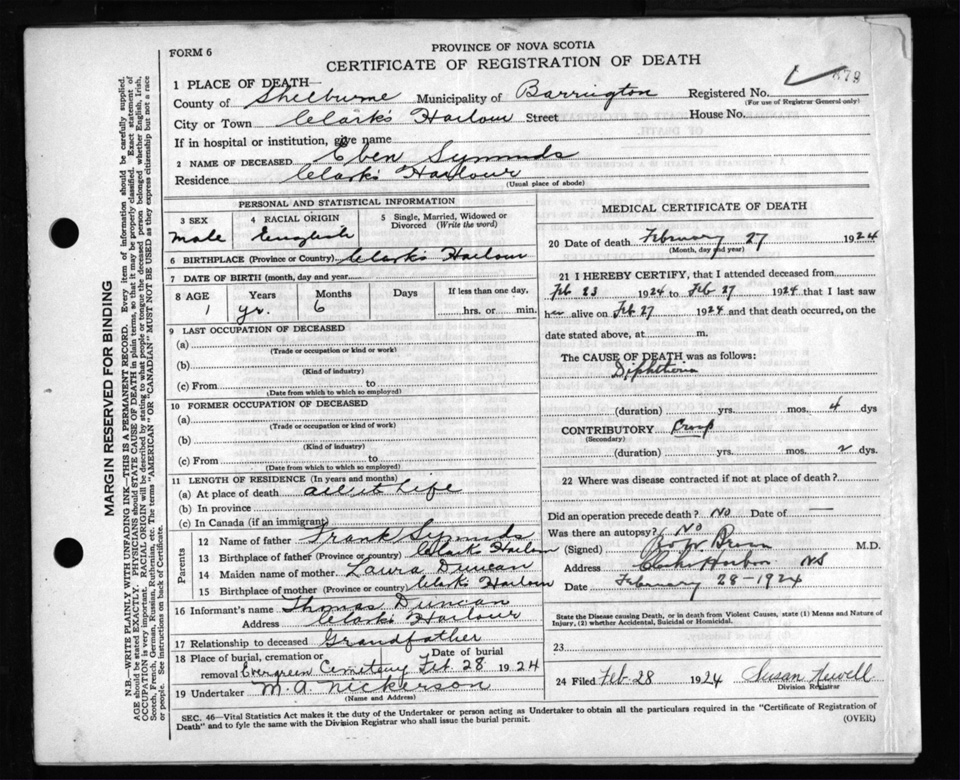 FORM 6
PROVINCE OF NOVA SCOTIA
CERTIFICATE OF REGISTRATION OF DEATH
1 PLACE OF DEATH
County of Shelburne Municipality of Barrington Registered No. 879
(For use of Registrar General only)
City or Town Clark's Harbour Street House No.
If in hospital or institution, give name
2 NAME OF DECEASED Eben Symonds
Residence Clark's Harbour
(Usual place of abode)
PERSONAL AND STATISTICAL INFORMATION
3 SEX 4 RACIAL ORIGIN 5 Single, Married, Widowed or Divorced (Write the word)
Male English
6 BIRTHPLACE (Province or Country) Clark's Harbour
7 DATE OF BIRTH (month, day and year)
8 AGE Years Months Days If less than one day,
1 yr. 6 hrs. or min.
9 LAST OCCUPATION OF DECEASED
(a)
(Trade or occupation or kind or work)
(b)
(Kind of industry)
(c) From to
(Date from which to which so employed)
10 FORMER OCCUPATION OF DECEASED
(a)
(Trade or occupation or kind of work)
(b)
(Kind of industry)
(c) From to
(Date from which to which so employed)
11 LENGTH OF RESIDENCE (In years and months)
(a) At place of death all it Life
(b) In province
(c) In Canada (if an immigrant)
Parents
12 Name of father Frank Symonds
13 Birthplace of father (Province or country) Clark's Harbour
14 Maiden name of mother Laura Duncan
15 Birthplace of mother (Province or country) Clark's Harbour
16 Informant's name Thomas Duncan
Address Clark's Harbour
17 Relationship to deceased Grandfather
18 Place of burial, cremation or removal Evergreen Cemetery Date of burial Feb 28 1924
19 Undertaker M. A. Nickerson
(Name and Address)
MEDICAL CERTIFICATE OF DEATH
20 Date of death February 27 1924
(Month, day and year)
21 I HEREBY CERTIFY, that I attended deceased from
Feb 23 1924 to Feb 27 1924 that I last saw
h alive on Feb 27 1924 and that death occurred, on the
date stated above, at m.
The CAUSE OF DEATH was as follows:
Diphtheria
(duration) yrs. mos. 4 dys
CONTRIBUTORY Croup
(Secondary)
(duration) yrs. mos. 2 dys.
22 Where was disease contracted if not at place of death?
Did an operation precede death? No Date of —
Was there an autopsy? No
(Signed) M.D.
Address Clarks Harbor NS
Date February 28-1924
State the Disease causing Death, or in death from Violent Causes, state (1) Means and Nature of
Injury, (2) whether Accidental, Suicidal or Homicidal.
23
24 Filed Feb 28 1924 Susan Newell
Division Registrar
SEC. 46—Vital Statistics Act makes it the duty of the Undertaker or person acting as Undertaker to obtain all the particulars required in the "Certificate of Registration of
Death" and to fyle the same with the Division Registrar who shall issue the burial permit.
(OVER)
MARGIN RESERVED FOR BINDING
N.B.—WRITE PLAINLY WITH UNFADING INK—THIS IS A PERMANENT RECORD. Every item of information should be carefully supplied.
AGE should be stated EXACTLY. PHYSICIANS should STATE CAUSE OF DEATH in plain terms, so that it may be properly classified. Exact statement of
OCCUPATION is very important. RACIAL ORIGIN will be described by stating to what people or tongue the deceased person belonged whether English, Irish,
Scotch, French, German, Russian, Ruthenian, etc. The terms "AMERICAN" OR "CANADIAN" MUST NOT BE USED as they express citizenship but not a race
or people. See instructions on back of Certificate.